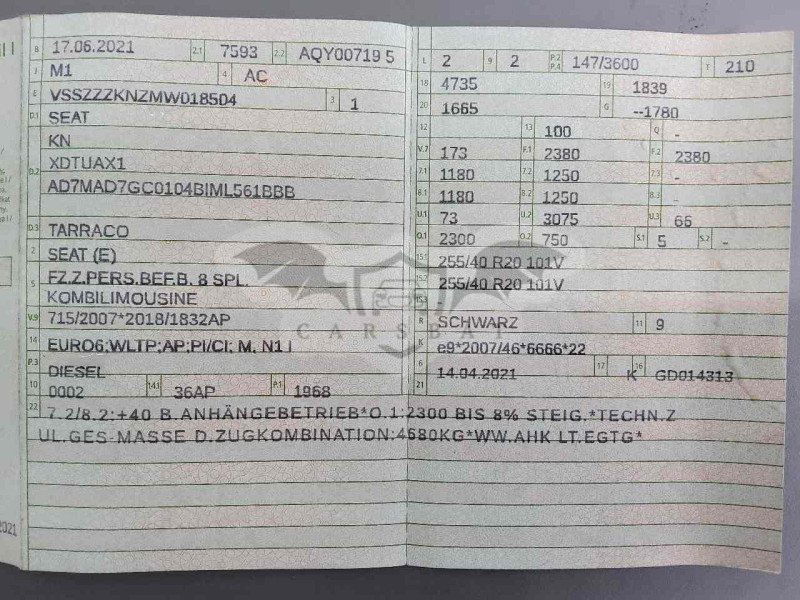 B 17.06.2021 2.1 7593 2.2 AQY00719 5
J M1 4 AC
E VSSZZZKNZMW018504 3 1
D.1 SEAT
D.2 KN
XDTUAX1
AD7MAD7GC0104BIML561BBB
D.3 TARRACO
2 SEAT (E)
5 FZ.Z.PERS.BEF.B. 8 SPL.
KOMBILIMOUSINE
V.9 715/2007*2018/1832AP
14 EURO6;WLTP;AP;PI/CI; M, N1 I
P.3 DIESEL
10 0002 14.1 36AP P.1 1968
L 2 9 2 P.2 P.4 147/3600 T 210
18 4735 19 1839
20 1665 G --1780
12 13 100 Q -
V.7 173 F.1 2380 F.2 2380
7.1 1180 7.2 1250 7.3 -
8.1 1180 8.2 1250 8.3 -
U.1 73 U.2 3075 U.3 66
O.1 2300 O.2 750 S.1 5 S.2 -
15.1 255/40 R20 101V
15.2 255/40 R20 101V
15.3
R SCHWARZ 11 9
K e9*2007/46*6666*22
6 14.04.2021 17 K 16 GD014313
21
22 7.2/8.2:+40 B.ANHÄNGEBETRIEB*O.1:2300 BIS 8% STEIG.*TECHN.Z
UL.GES-MASSE D.ZUGKOMBINATION:4580KG*WW.AHK LT.EGTG*
CARSBAT
2021